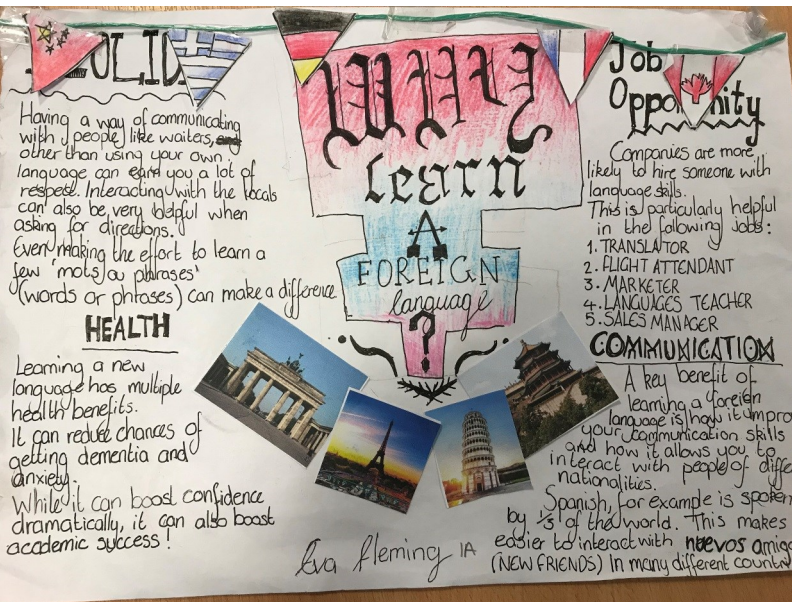 WHY
learn
A
FOREIGN
language
?
Having a way of communicating
with people like waiters,
other than using your own
language can earn you a lot of
respect. Interacting with the locals
can also be very helpful when
asking for directions.
Even making the effort to learn a
few 'mots ou phrases'
(words or phrases) can make a difference
HEALTH
Learning a new
language has multiple
health benefits.
It can reduce chances of
getting dementia and
anxiety.
While it can boost confidence
dramatically, it can also boost
academic success!
Job
Opportunity
Companies are more
likely to hire someone with
language skills.
This is particularly helpful
in the following jobs:
1. TRANSLATOR
2. FLIGHT ATTENDANT
3. MARKETER
4. LANGUAGES TEACHER
5. SALES MANAGER
COMMUNICATION
A key benefit of
learning a foreign
language is how it impro
your communication skills
and how it allows you to
interact with people of diffe
nationalities.
Spanish, for example is spoken
by 1/3 of the world. This makes
easier to interact with nuevos amigo
(NEW FRIENDS) In many different countr
Eva Fleming 1A